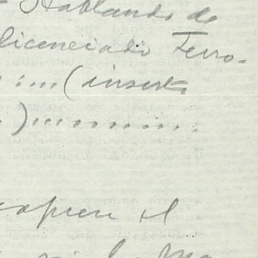 Hablando de
licenciado Ferro-
....(inserte
).............
copien el